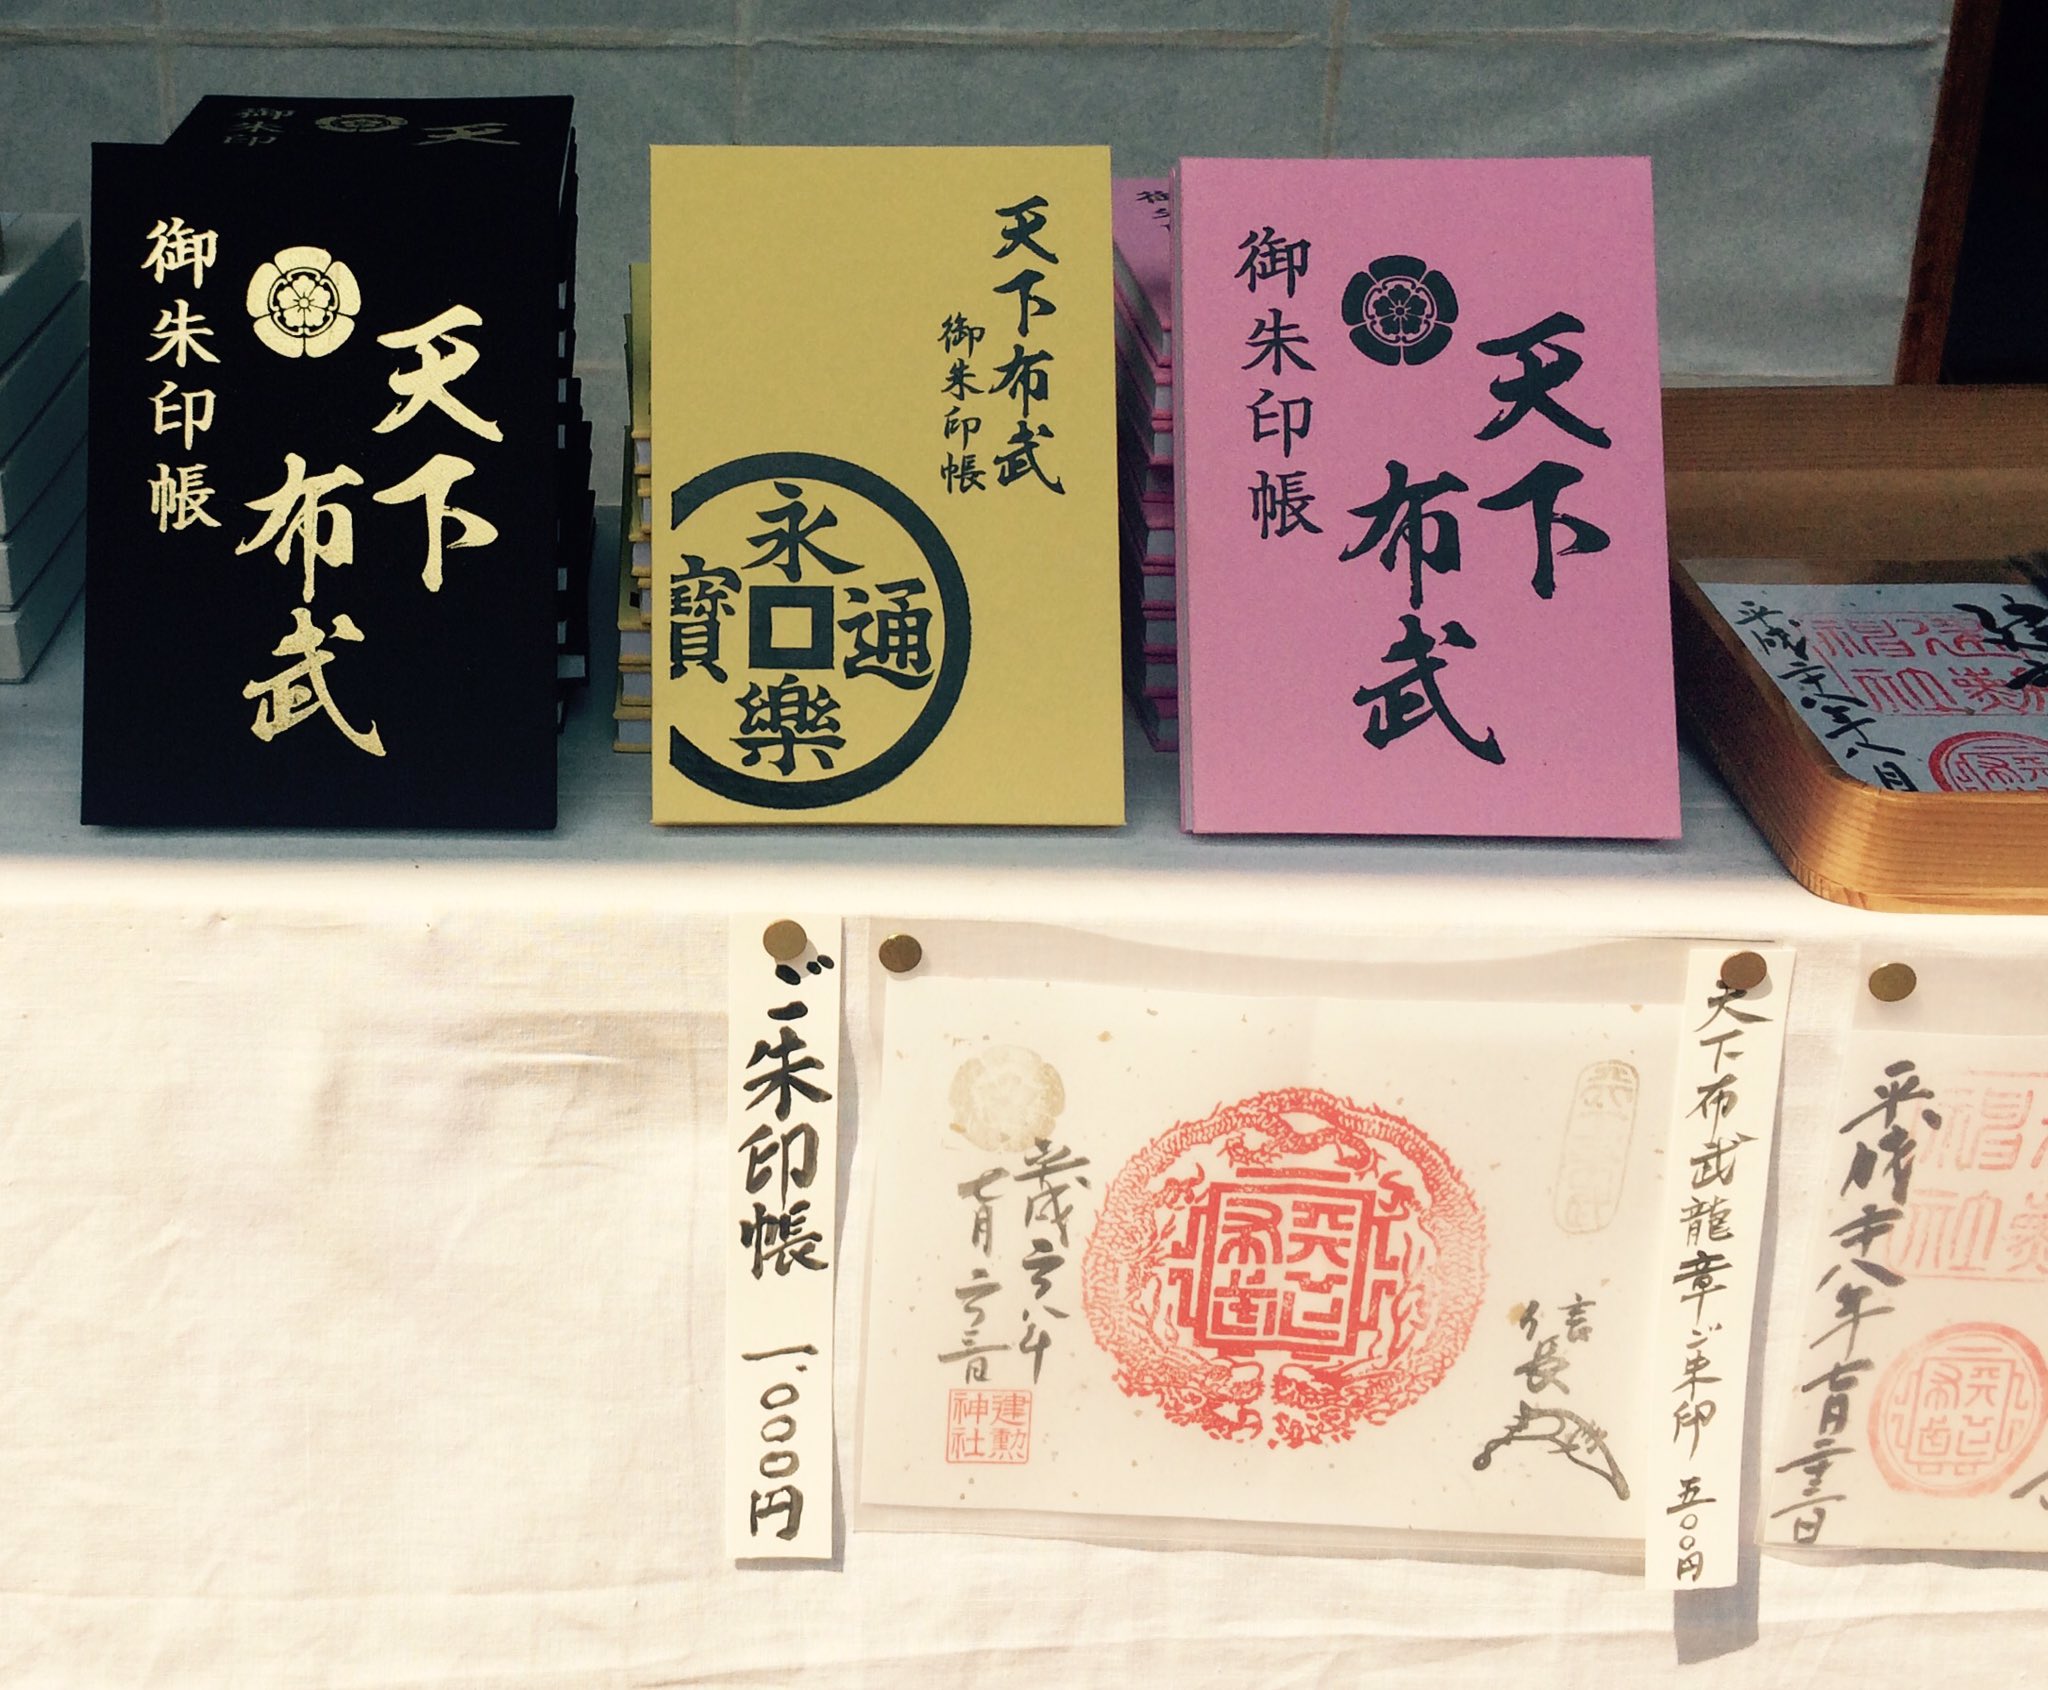 御朱印
天
天下
布武
御朱印帳
天下布武
御朱印帳
永樂通寶
天下
布武
御朱印帳
平成二十八年八月
ご朱印帳 一、〇〇〇円
天下布武龍章ご朱印 五〇〇円
信長
平成二十八年
七月二十三日
建勲
神社
平成二十八年七月二十三日